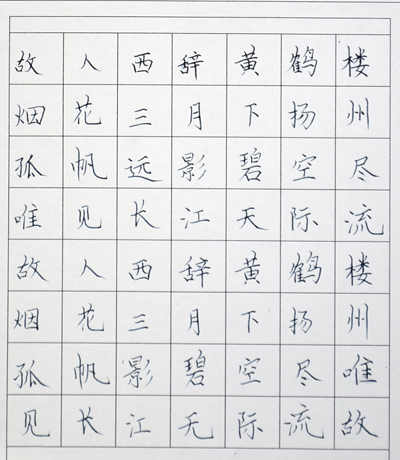 故人西辞黄鹤楼
烟花三月下扬州
孤帆远影碧空尽
唯见长江天际流
故人西辞黄鹤楼
烟花三月下扬州
孤帆影碧空尽唯
见长江无际流故